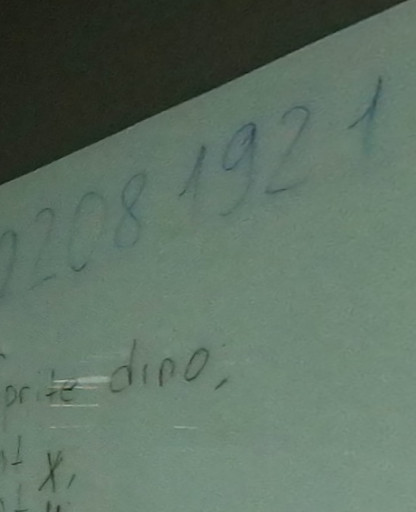 2208 192 1
prite dino,
t x,